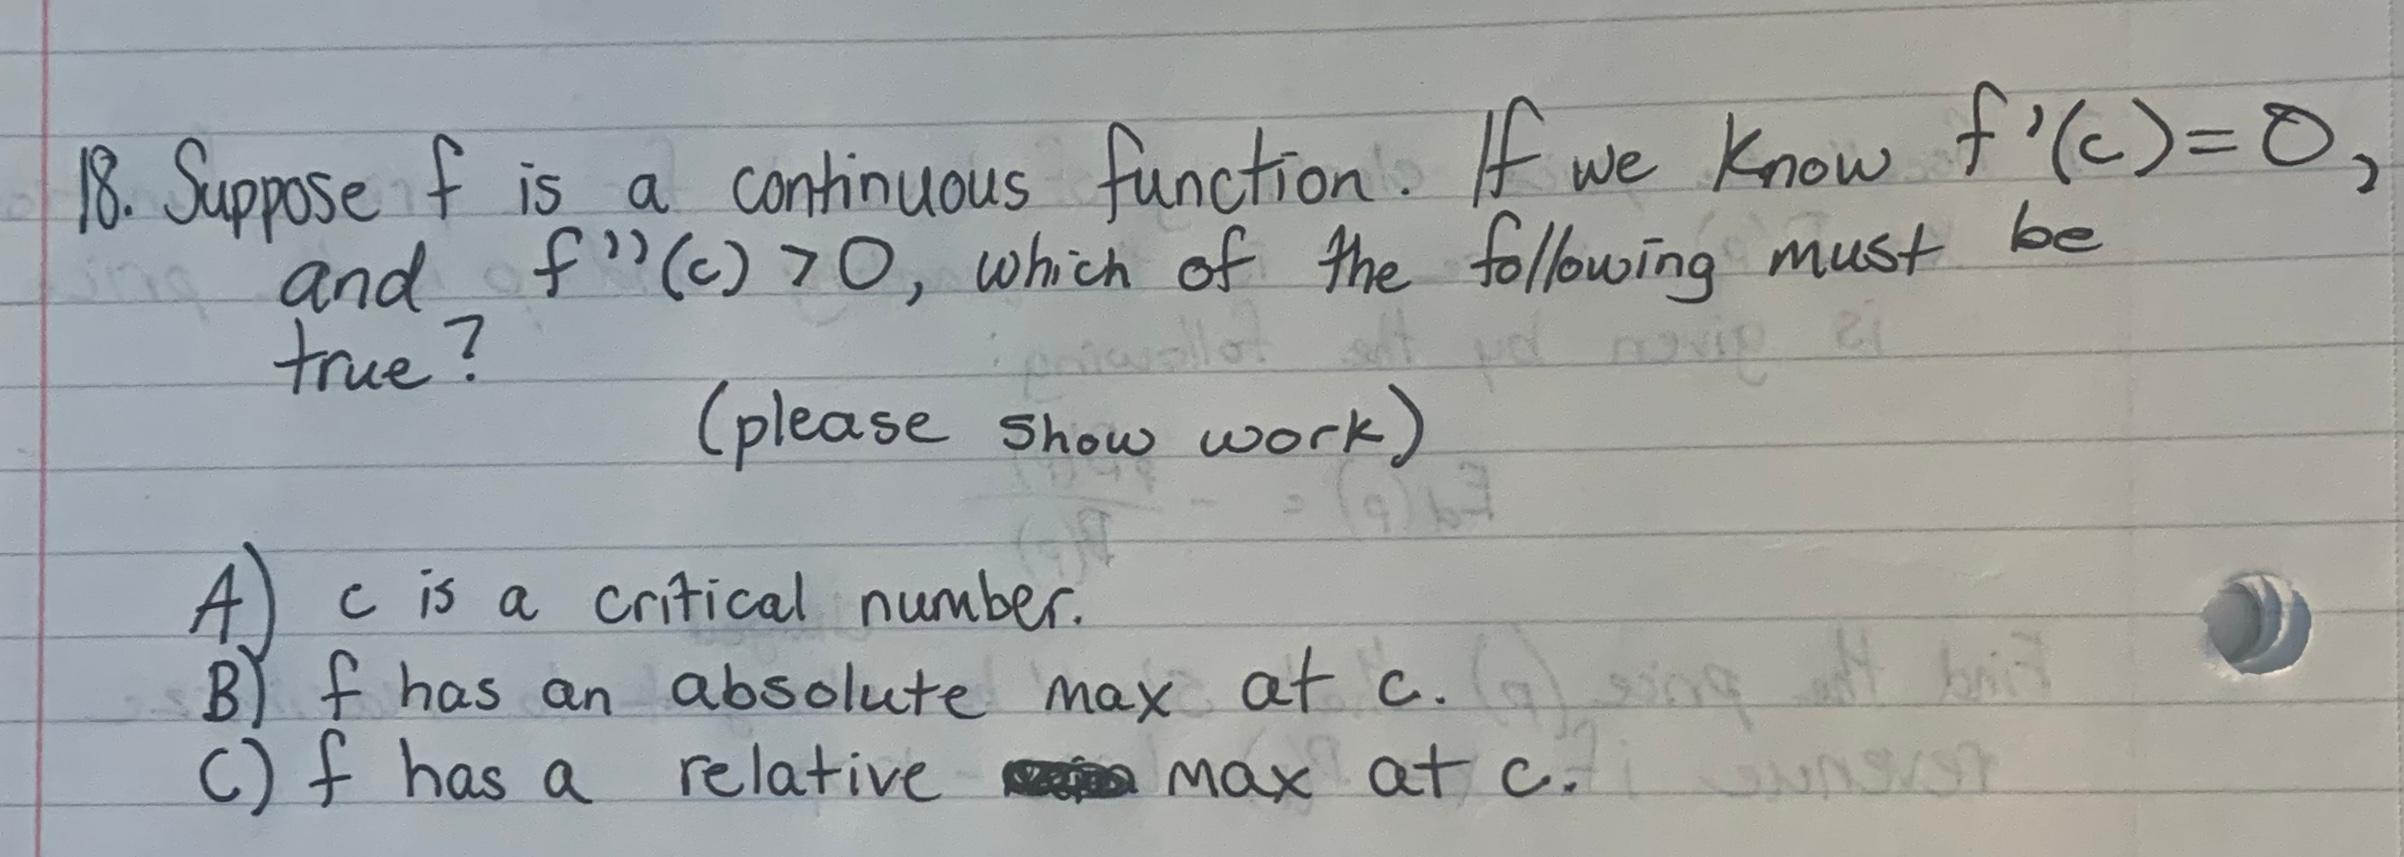 18. Suppose f is a continuous function. If we know f'(c)=0,
and f''(c)>0, which of the following must be
true?
(please show work)
A) c is a critical number.
B) f has an absolute max at c.
C) f has a relative max at c.